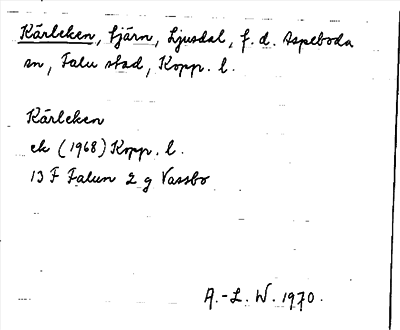 Kärleken, tjärn, Ljusdal, f. d. Aspeboda
sn, Falu stad, Kopp. l.
Kärleken
ek (1968) Kopp. l.
13 F Falun 2 g Vassbo
A.-L. W. 1970.